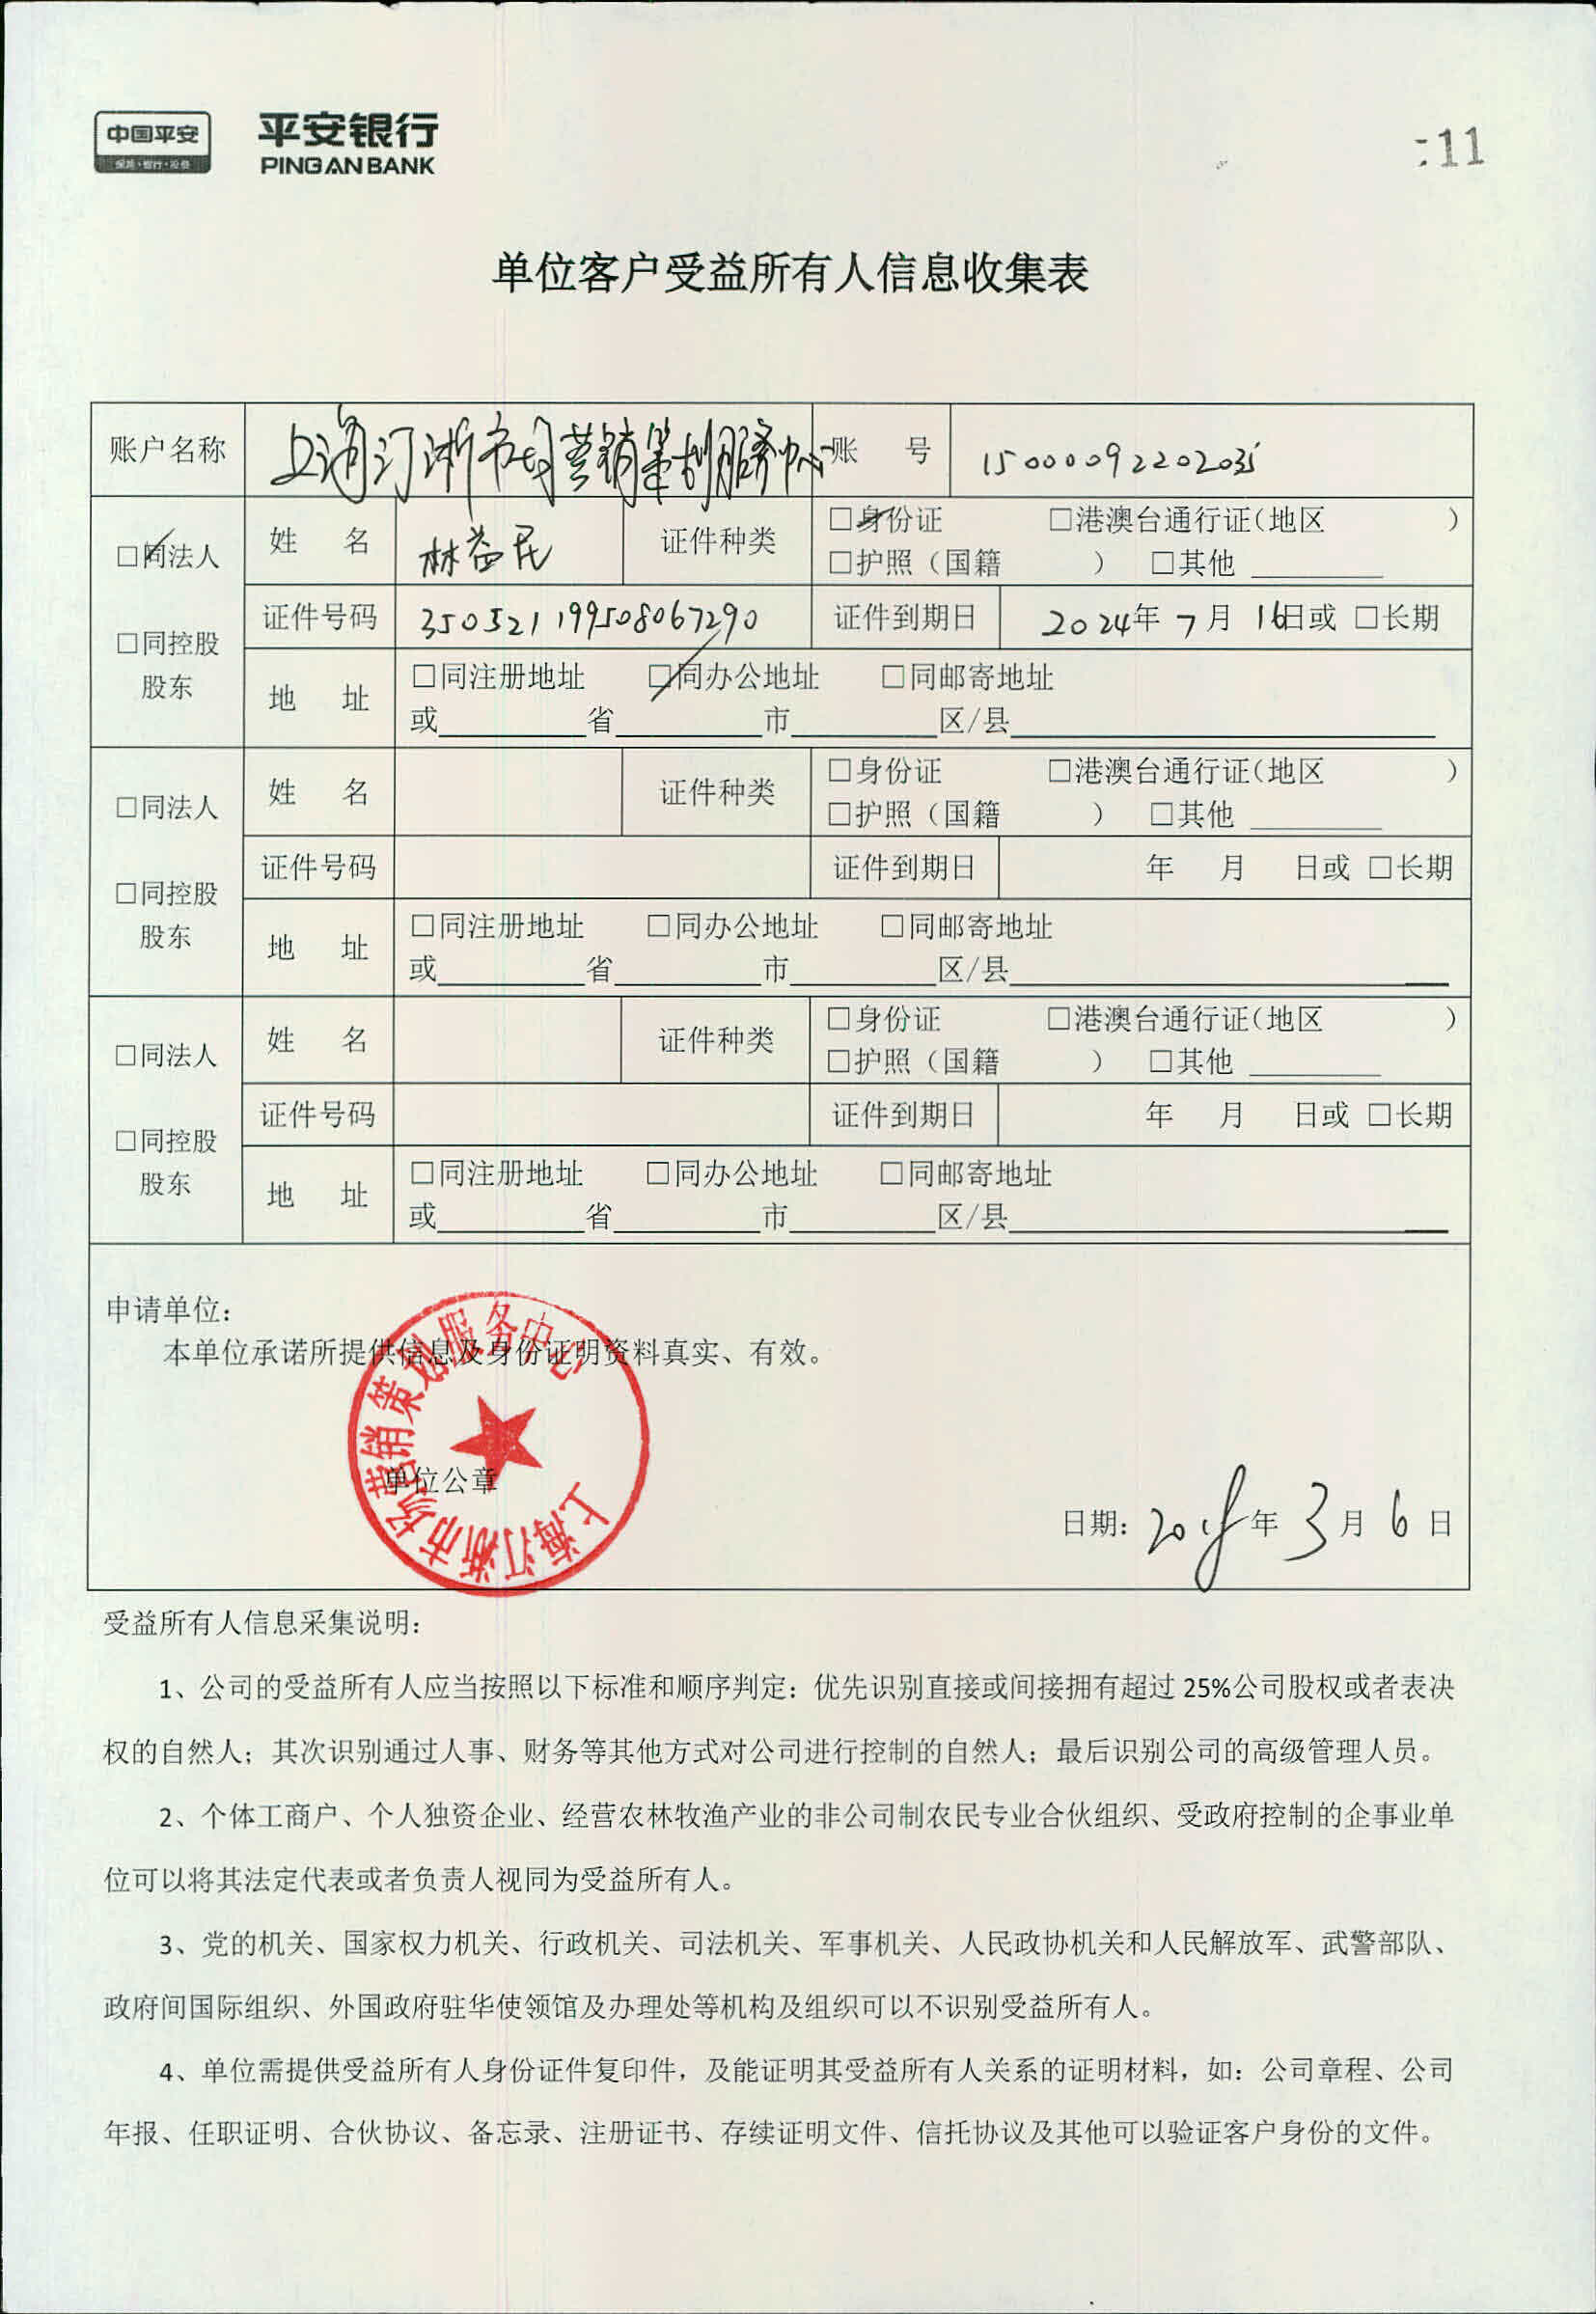 中国平安
保险·银行·投资
平安银行
PINGAN BANK
:11
单位客户受益所有人信息收集表
账户名称 上海汀浙市场营销策划服务中心 账 号 15000092202035
□同法人 姓 名 林益民 证件种类 □身份证 □港澳台通行证(地区 )
□护照（国籍 ） □其他
□同控股股东 证件号码 350521199508067290 证件到期日 2024年 7月 16日或 □长期
地 址 □同注册地址 □同办公地址 □同邮寄地址
或 省 市 区/县
□同法人 姓 名 证件种类 □身份证 □港澳台通行证(地区 )
□护照（国籍 ） □其他
□同控股股东 证件号码 证件到期日 年 月 日或 □长期
地 址 □同注册地址 □同办公地址 □同邮寄地址
或 省 市 区/县
□同法人 姓 名 证件种类 □身份证 □港澳台通行证(地区 )
□护照（国籍 ） □其他
□同控股股东 证件号码 证件到期日 年 月 日或 □长期
地 址 □同注册地址 □同办公地址 □同邮寄地址
或 省 市 区/县
申请单位：
本单位承诺所提供信息及身份证明资料真实、有效。
上海汀浙市场营销策划服务中心
单位公章
日期：2018年 3月 6日
受益所有人信息采集说明：
1、公司的受益所有人应当按照以下标准和顺序判定：优先识别直接或间接拥有超过 25%公司股权或者表决
权的自然人；其次识别通过人事、财务等其他方式对公司进行控制的自然人；最后识别公司的高级管理人员。
2、个体工商户、个人独资企业、经营农林牧渔产业的非公司制农民专业合伙组织、受政府控制的企事业单
位可以将其法定代表或者负责人视同为受益所有人。
3、党的机关、国家权力机关、行政机关、司法机关、军事机关、人民政协机关和人民解放军、武警部队、
政府间国际组织、外国政府驻华使领馆及办理处等机构及组织可以不识别受益所有人。
4、单位需提供受益所有人身份证件复印件，及能证明其受益所有人关系的证明材料，如：公司章程、公司
年报、任职证明、合伙协议、备忘录、注册证书、存续证明文件、信托协议及其他可以验证客户身份的文件。